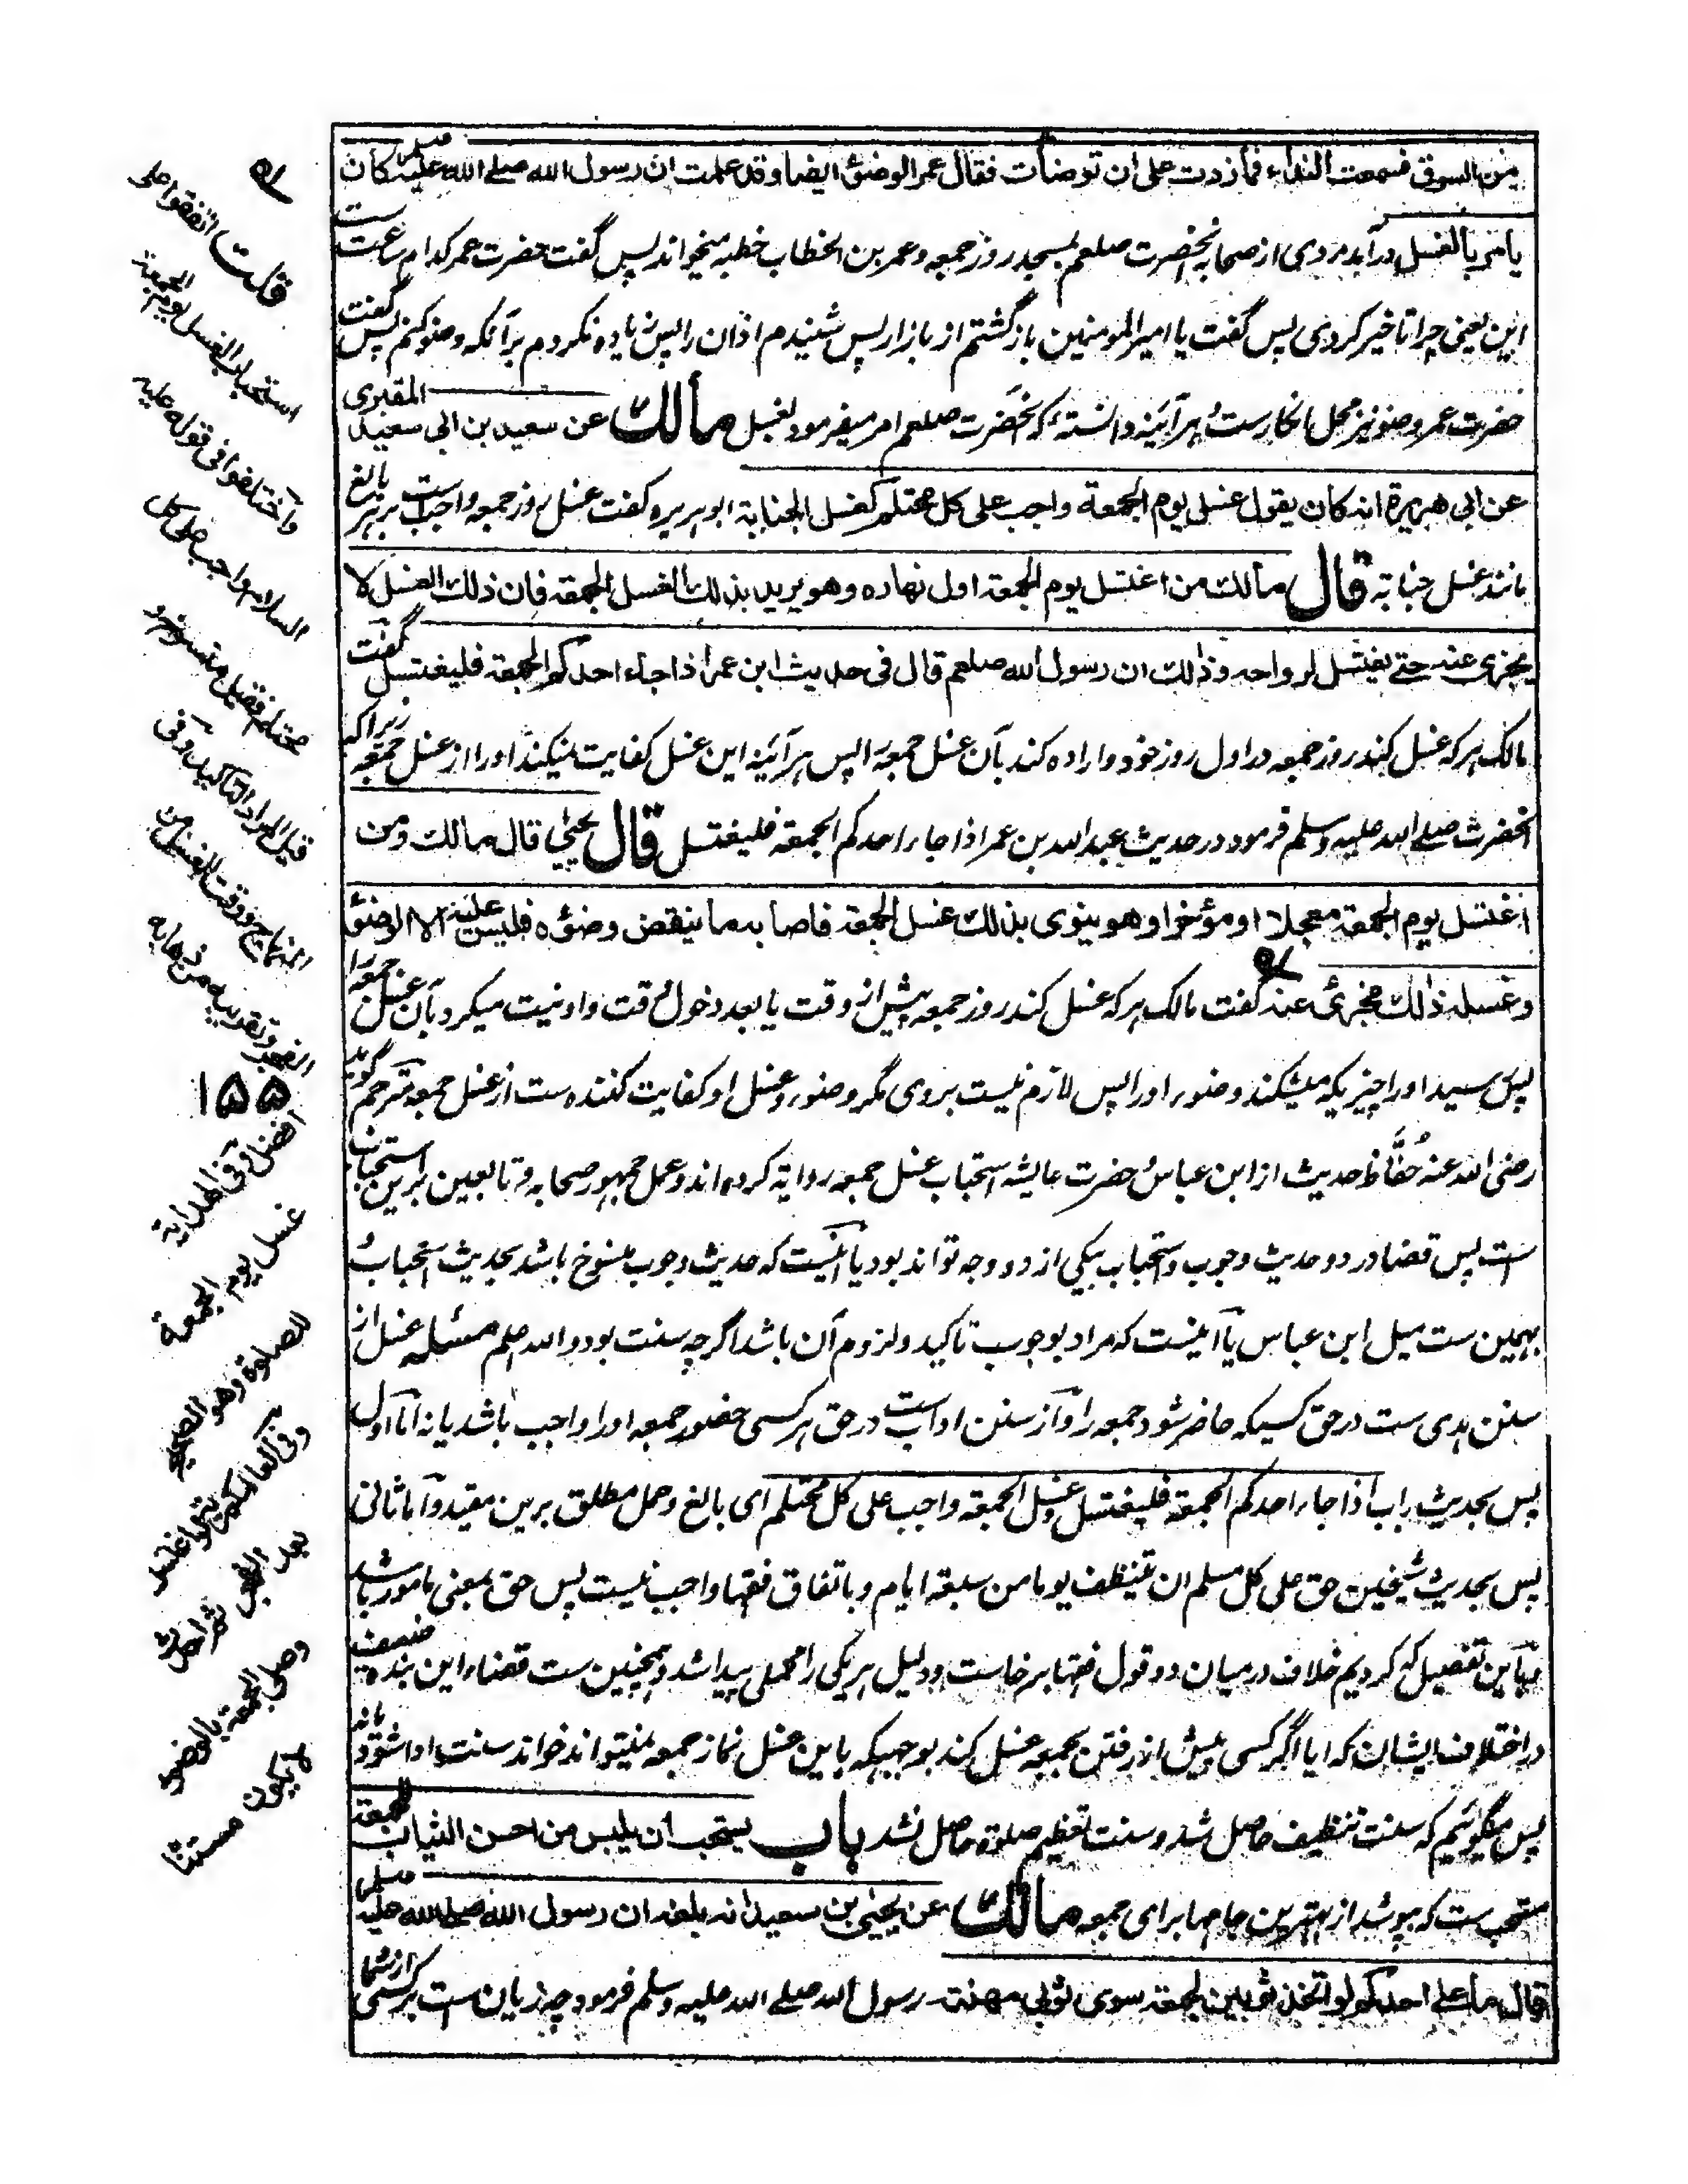 من السوق فسمعت النداء فما زدت على ان توضأت فقال عمر الوضوء ايضا وقد علمت ان رسول الله صلے الله عليه وسلم كان
يامر بالغسل درآمد مردی از صحابه آنحضرت صلعم بمسجد روز جمعه و عمر بن الخطاب خطبه میخواند پس گفت حضرت عمر کدام ساعت ست
این یعنی چرا تاخیر کردی پس گفت یا امیر المومنین بازگشتم از بازار پس شنیدم اذان را پس زیاده نکردم برآنکه وضو کنم پس گفت
حضرت عمر وضو نیز محل انکارست و هر آئینه دانستهٔ که آنحضرت صلعم امر میفرمود بغسل مالك عن سعيد بن ابى سعيد المقبرى
عن ابى هريرة انه كان يقول غسل يوم الجمعة واجب على كل محتلم كغسل الجنابة ابو ہریره گفت غسل روز جمعه واجب ست بر ہر بالغ
مانند غسل جنابة قال مالك من اغتسل يوم الجمعة اول نهاره وهو يريد بذلك الغسل الجمعة فان ذلك الغسل لا
يجزى عنه حتے يغتسل لرواحه وذلك ان رسول الله صلعم قال فى حديث ابن عمر اذا جاء احدكم الجمعة فليغتسل گفت
مالک ہر که غسل کند روز جمعه در اول روز خود و اراده کند بآن غسل جمعه را پس ہر آئینه این غسل کفایت نمیکند او را از غسل جمعه زیراکه
آنحضرت صلے الله علیه وسلم فرمود در حدیث عبد الله بن عمر اذا جاء احدكم الجمعة فليغتسل قال يحيىٰ قال مالك ومن
اغتسل يوم الجمعة معجلا او مؤخرا وهو ينوى بذلك غسل الجمعة فاصابه ما ينقض وضوءه فليس عليه الا الوضوء
وغسله ذلك مجزئ عنه گفت مالک ہر که غسل کند روز جمعه پیش از وقت یا بعد دخول وقت و او نیت میکرد بآن غسل جمعه را
پس رسید او را چیزیکه میشکند وضو را او را پس لازم نیست بروی مگر وضو و غسل او کفایت کننده ست از غسل جمعه مترجم گوید
رضی الله عنه حُفَّاظ حدیث از ابن عباس و حضرت عایشه استحباب غسل جمعه روایة کرده اند و عمل جمهور صحابه و تابعین برین استحباب
ست پس قضا در دو حدیث وجوب و استحباب بیکی از دو وجه تواند بود یا آنیست که حدیث وجوب منسوخ باشد بحدیث استحباب و
بهمین ست میل ابن عباس یا آنیست که مراد بوجوب تاکید و لزوم آن باشد اگرچه سنت بود والله اعلم مسئله غسل از
سنن ہدی ست در حق کسیکه حاضر شود جمعه را و از سنن اداب ست در حق ہر کسی حضور جمعه او را واجب باشد یا نه اما اول
پس بحدیث باب اذا جاء احدكم الجمعة فليغتسل غسل الجمعة واجب على كل محتلم ای بالغ و حمل مطلق برین مقید و اما ثانی
پس بحدیث شیخین حق على كل مسلم ان يتنظف يوما من سبعة ايام و باتفاق فقها واجب نیست پس حق بمعنی مامور باشد
باین تفصیل که کردیم خلاف درمیان دو قول فقها برخاست و دلیل ہر یکی را محملی پیدا شد و همچنین ست قضاء این بنده ضعیف
در اختلاف ایشان که ایا اگر کسی پیش از رفتن بجمعه غسل کند بوجہیکه باین غسل نماز جمعه نمیتواند خواند سنت ادا شود یا نه
پس میگوئیم که سنت تنظیف حاصل شد و سنت تعظیم صلوة حاصل نشد باب يستحب ان يلبس من احسن الثياب للجمعة
مستحب ست که بپوشد از بهترین جامها برای جمعه مالك عن يحيىٰ بن سعيد انه بلغه ان رسول الله صلے الله عليه وسلم
قال ما على احدكم لو اتخذ ثوبين لجمعته سوى ثوبى مهنته رسول الله صلے الله علیه وسلم فرمود چه زیان است بر کسی از شما
قلت اتفقوا على
استحباب الغسل يوم الجمعة
واختلفوا فى قوله عليه
السلام واجب على كل
محتلم فقيل منسوخ و
قيل المراد التاكيد وفى
المنهاج ووقت الغسل من
الفجر وتقريبه من ذهابه
۱۵۵
افضل وفى الهداية
غسل يوم الجمعة
للصلوة وهو الصحيح
وفى العالمكيرية لو اغتسل
بعد الفجر ثم احدث
وصلى الجمعة بالوضوء
لا يكون مستنا